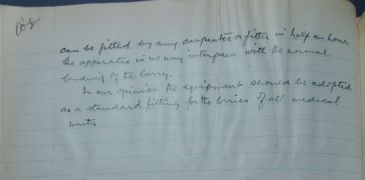 can be fitted by any carpenter or fitter in half an hour
the apparatus in no way interferes with the normal
loading of the lorry.
In our opinion the equipment should be adopted
as a standard fitting for the lorries of all medical
units